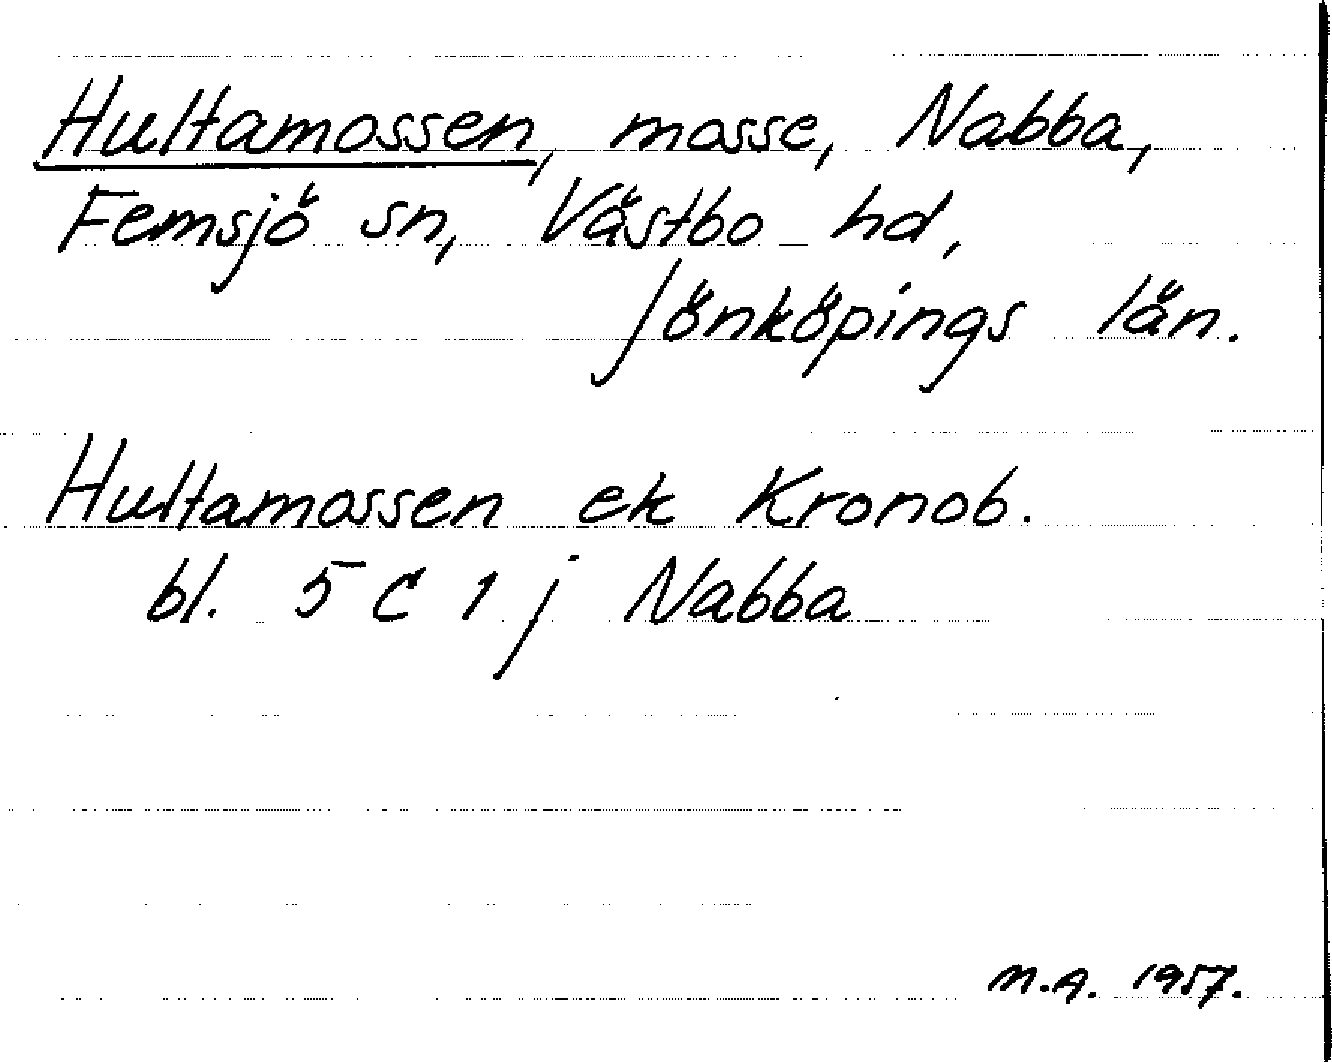 Hultamossen, mosse, Nabba,
Femsjö sn, Västbo hd,
Jönköpings län.
Hultamossen ek Kronob.
bl. 5 C 1 j Nabba
M.A. 1957.